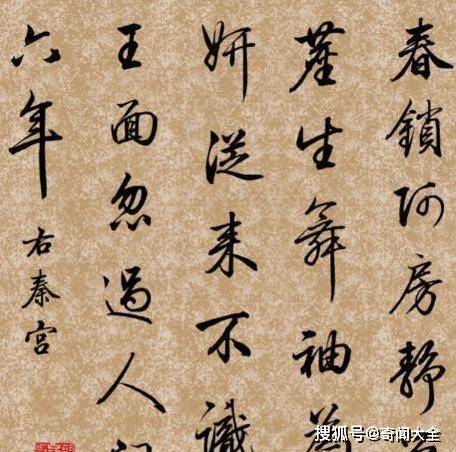 春鎖阿房靜
塵生舞袖為
妍從来不識
王面忽過人
六年
右秦宮
搜狐号@奇闻大全